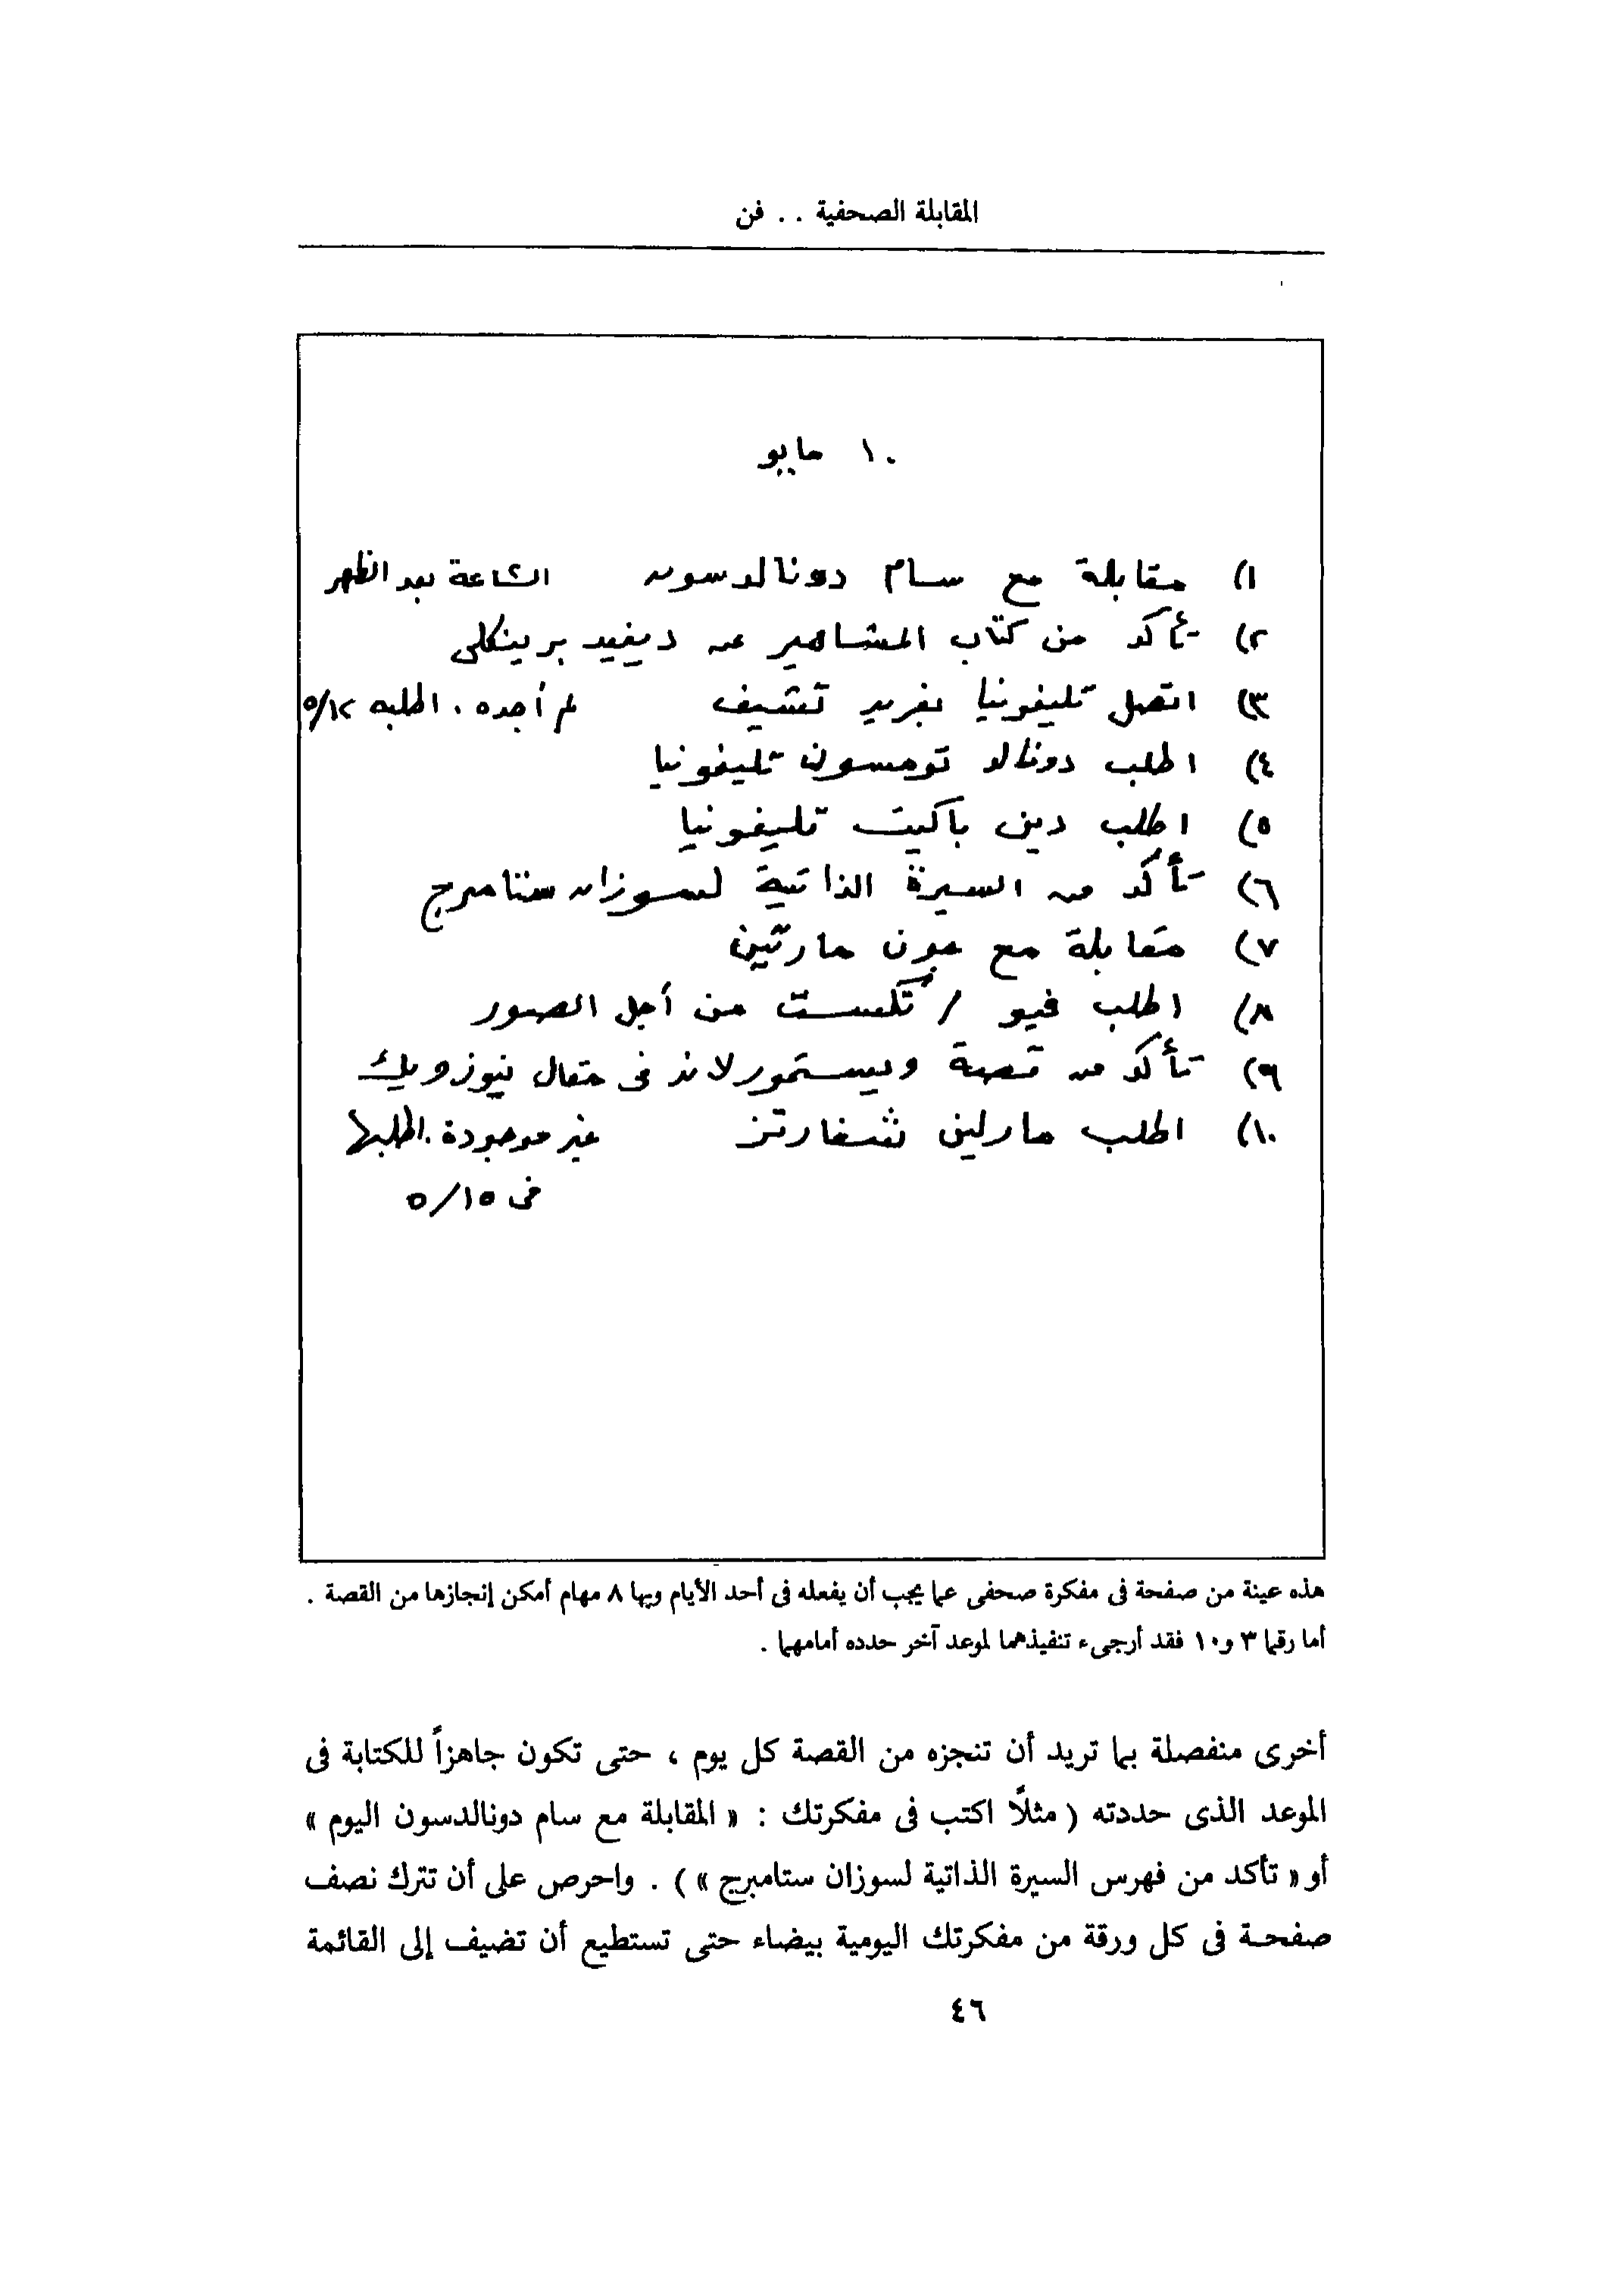 المقابلة الصحفية . . فن
١٠ مايو
١) مقابلة مع سام دونالدسون الساعة ٢ بعد الظهر
٢) تأكد من كتاب المشاهير عن ديفيد برينكلى
٣) اتصل تليفونيا بفريد تشيف لم أجده . اطلبه ٥/١٢
٤) اطلب دونالد تومسون تليفونيا
٥) اطلب دين باكيت تليفونيا
٦) تأكد من السيرة الذاتية لسوزان ستامبرج
٧) مقابلة مع جون مارتين
٨) اطلب فيو / تكست من أجل الصور
٩) تأكد من قصة ويستمورلاند فى مقال نيوزويك
١٠) اطلب مارلين شفارتز غير موجودة . اطلبها
فى ٥/١٥
هذه عينة من صفحة فى مفكرة صحفى عما يجب أن يفعله فى أحد الأيام وبها ٨ مهام أمكن إنجازها من القصة .
أما رقما ٣ و١٠ فقد أرجىء تنفيذهما لموعد آخر حدده أمامهما .
أخرى منفصلة بما تريد أن تنجزه من القصة كل يوم ، حتى تكون جاهزاً للكتابة فى
الموعد الذى حددته ( مثلًا اكتب فى مفكرتك : « المقابلة مع سام دونالدسون اليوم »
أو « تأكد من فهرس السيرة الذاتية لسوزان ستامبرج » ) . واحرص على أن تترك نصف
صفحة فى كل ورقة من مفكرتك اليومية بيضاء حتى تستطيع أن تضيف إلى القائمة
٤٦